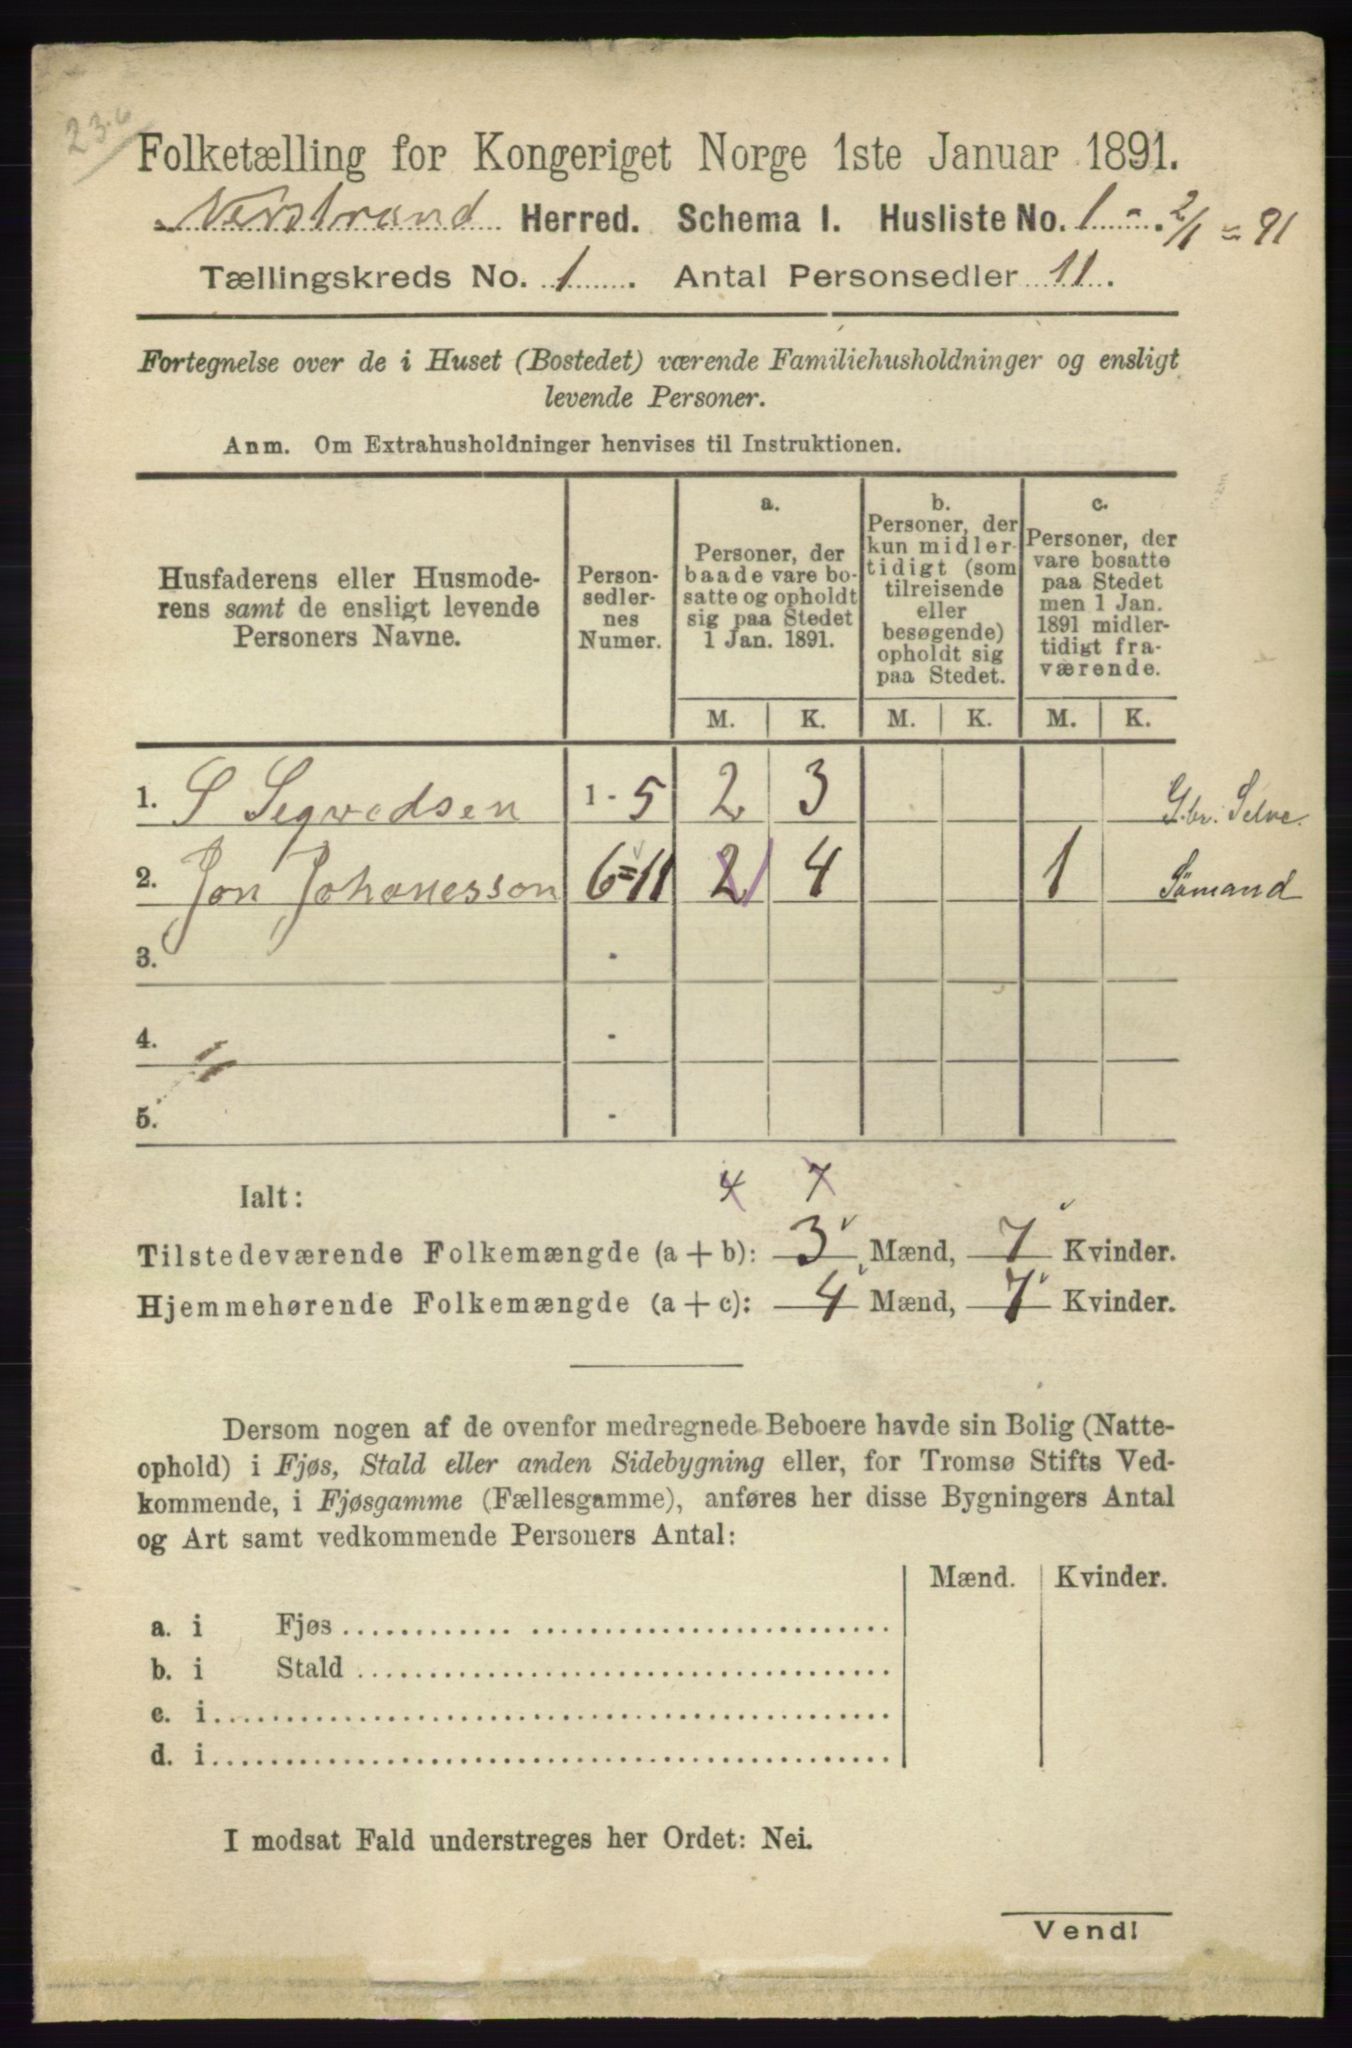 23.6
Folketælling for Kongeriget Norge 1ste Januar 1891.
Nerstrand Herred. Schema I. Husliste No. 1 - 2/1 = 91
Tællingskreds No. 1. Antal Personsedler 11.
Fortegnelse over de i Huset (Bostedet) værende Familiehusholdninger og ensligt
levende Personer.
Anm. Om Extrahusholdninger henvises til Instruktionen.
Husfaderens eller Husmode-
rens samt de ensligt levende
Personers Navne.
Person-
sedler-
nes
Numer.
a.
Personer, der
baade vare bo-
satte og opholdt
sig paa Stedet
1 Jan. 1891.
b.
Personer, der
kun midler-
tidigt (som
tilreisende
eller
besøgende)
opholdt sig
paa Stedet.
c.
Personer, der
vare bosatte
paa Stedet
men 1 Jan.
1891 midler-
tidigt fra-
værende.
M. K. M. K. M. K.
1. S Segvedsen 1 - 5 2 3 G.br. Selve.
2. Jon Johanesson 6=11 2 1 4 1 Sømand
3. -
4. -
5. -
4 7
Ialt:
Tilstedeværende Folkemængde (a + b): 3 Mænd, 7 Kvinder.
Hjemmehørende Folkemængde (a + c): 4 Mænd, 7 Kvinder.
Dersom nogen af de ovenfor medregnede Beboere havde sin Bolig (Natte-
ophold) i Fjøs, Stald eller anden Sidebygning eller, for Tromsø Stifts Ved-
kommende, i Fjøsgamme (Fællesgamme), anføres her disse Bygningers Antal
og Art samt vedkommende Personers Antal:
Mænd. Kvinder.
a. i Fjøs
b. i Stald
c. i
d. i
I modsat Fald understreges her Ordet: Nei.
Vend!